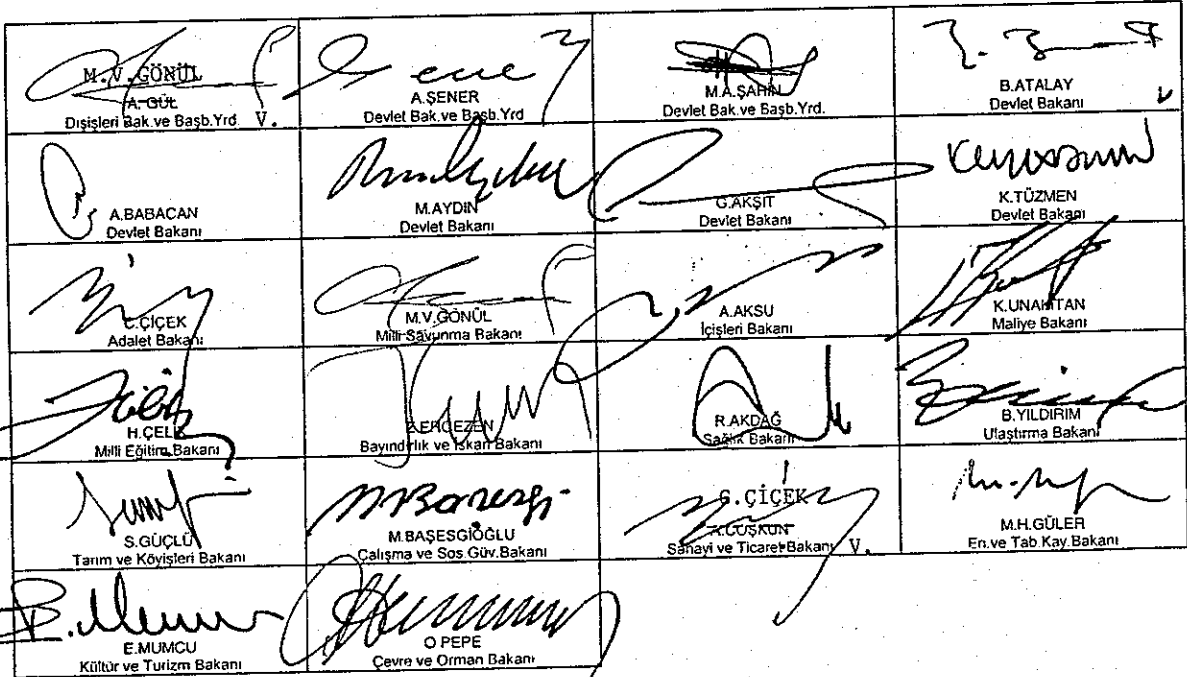 M.V.GÖNÜL
A.GÜL
Dışişleri Bak.ve Başb.Yrd. V.
A.ŞENER
Devlet Bak.ve Başb.Yrd
M.A.ŞAHİN
Devlet Bak.ve Başb.Yrd.
B.ATALAY
Devlet Bakanı
A.BABACAN
Devlet Bakanı
M.AYDIN
Devlet Bakanı
G.AKŞİT
Devlet Bakanı
K.TÜZMEN
Devlet Bakanı
C.ÇİÇEK
Adalet Bakanı
M.V.GÖNÜL
Milli Savunma Bakanı
A.AKSU
İçişleri Bakanı
K.UNAKITAN
Maliye Bakanı
H.ÇELİK
Milli Eğitim Bakanı
Z.ERGEZEN
Bayındırlık ve İskan Bakanı
R.AKDAĞ
Sağlık Bakanı
B.YILDIRIM
Ulaştırma Bakanı
S.GÜÇLÜ
Tarım ve Köyişleri Bakanı
M.BAŞESGİOĞLU
Çalışma ve Sos.Güv.Bakanı
C.ÇİÇEK
A.COŞKUN
Sanayi ve Ticaret Bakanı V.
M.H.GÜLER
En.ve Tab.Kay.Bakanı
E.MUMCU
Kültür ve Turizm Bakanı
O PEPE
Çevre ve Orman Bakanı